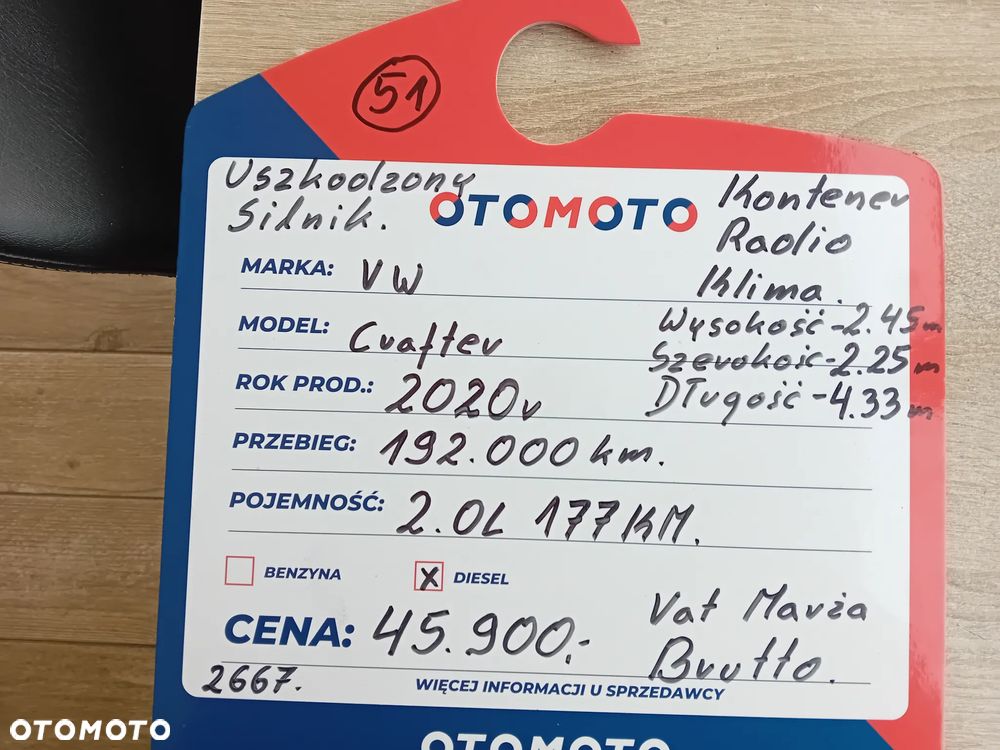 51
Uszkodzony
Silnik.
OTOMOTO
Kontener
Radio
Klima.
MARKA: VW
Wysokość-2.45m
MODEL: Crafter
Szerokość-2.25m
ROK PROD.: 2020r
Długość-4.33m
PRZEBIEG: 192.000 km.
POJEMNOŚĆ: 2.0L 177KM.
BENZYNA
X DIESEL
Vat Marża
CENA: 45.900,-
Brutto.
2667.
WIĘCEJ INFORMACJI U SPRZEDAWCY
OTOMOTO
OTOMOTO